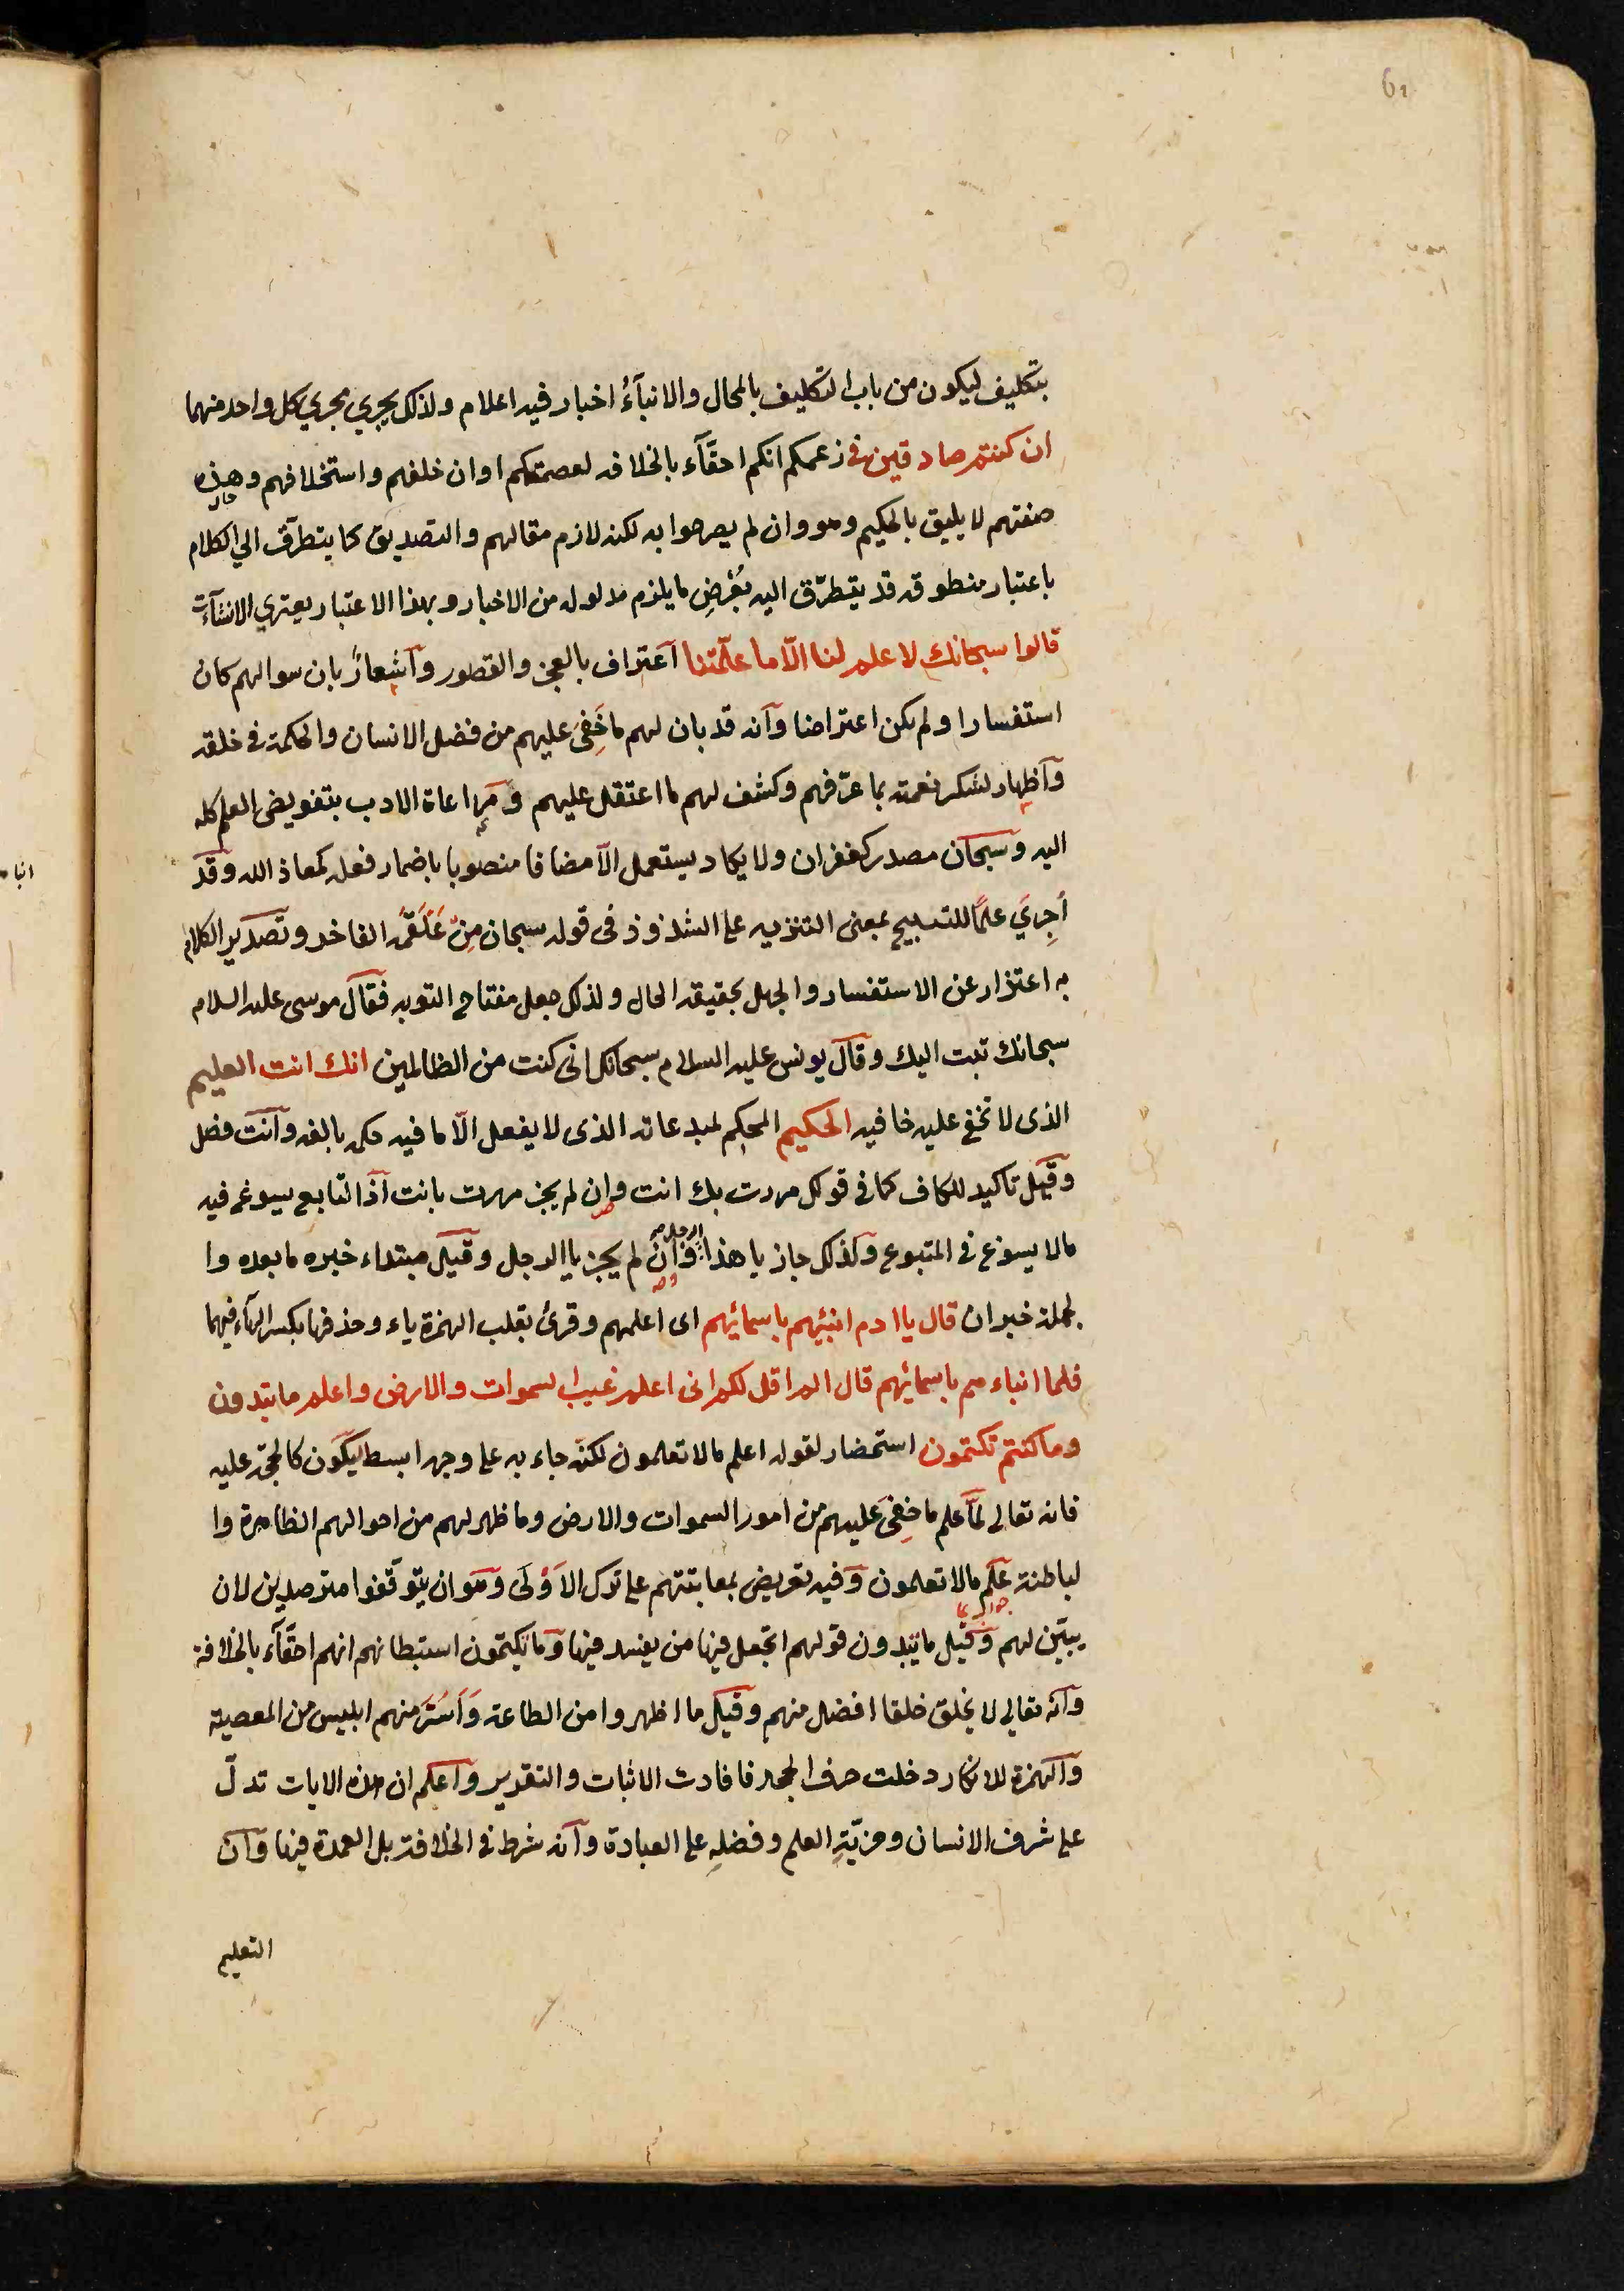 61
بتكليف ليكون من باب التكليف بالمحال والانبآءُ اخبار فيه اعلام ولذلك يجري مجري كل واحد منهما
ان كنتم صادقين في زعمكم انكم احقّآء بالخلافه لعصمتكم او ان خلقهم واستخلافهم وهذه
صفتهم لا يليق بالحكيم وهو وان لم يصرحوا به لكنه لازم مقالهم والتصديق كما يتطرّق الي الكلام
باعتبار منطوقه قد يتطرّق اليه بُغرَضِ ما يلزم مدلوله من الاخبار وبهذا الاعتبار يعتري الانشآءت
قالوا سبحانك لا علم لنا الّا ما علّمتنا اعتراف بالعجز والقصور واشعارٌ بان سوالهم كان
استفسارا ولم يكن اعتراضا وانه قد بان لهم ما خَفِيَ عليهم من فضل الانسان والحكمة في خلقه
واظهار لشكر نعمته بما عرّفهم وكشف لهم ما اعتقل عليهم ومراعاة الادب بتفويض العلم كله
اليه وسبحان مصدر كغفران ولا يكاد يستعمل الّا مضافا منصوبا باضمار فعله كمعاذ الله وقد
اُجرِيَ علمًا للتسبيح بمعنى التنزيه على الشذوذ في قوله سبحان مِنْ عَلْقَمَةَ الفاخر وتصدير الكلام
به اعتذار عن الاستفسار والجهل بحقيقه الحال ولذلك جعل مفتاح التوبه فقال موسى عليه السلام
سبحانك تبت اليك وقال يونس عليه السلام سبحانك انى كنت من الظالمين انك انت العليم
الذى لا تخفى عليه خافيه الحكيم المحكِم لمبدعاته الذى لا يفعل الّا ما فيه حكمه بالغه وانت فصل
وقيل تاكيد للكاف كما فى قولك مررت بك انت وان لم يجز مررت بانت اذ التابع يسوغ فيه
مالا يسوغ في المتبوع ولذلك جاز يا هذا الرجل وان لم يجز يا الرجل وقيل مبتداء خبره ما بعده وا
لجملة خبر ان قال يا ادم انبئهم باسمائهم اى اعلمهم وقرئ بقلب الهمزة ياء وحذفها بكسر الهآء فيهما
فلما انباءهم باسمائهم قال الم اقل لكم انى اعلم غيب السموات والارض واعلم ما تبدون
وما كنتم تكتمون استحضار لقوله اعلم مالا تعلمون لكنّه جاء به على وجه ابسط ليكون كالحجّة عليه
فانه تعالى لمّا علم ما خفِيَ عليهم من امور السموات والارض وما ظهر لهم من احوالهم الظاهرة وا
لباطنة علم مالا تعلمون وفيه تعريض بمعاتبتهم على ترك الاَوْلَى وهو ان يتوقّفوا مترصدين لان
يبيّن لهم وقيل ما تبدون قولهم اتجعل فيها من يفسد فيها وما تكتمون استبطانهم انهم احقّآء بالخلافة
وانه تعالى لا يخلق خلقا افضل منهم وقيل ما اظهروا من الطاعة وَاَسَرَّ منهم ابليس من المعصية
والهمزة للانكار دخلت حرف الجحد فافادت الاثبات والتقرير واعلم ان هذه الايات تدلّ
على شرف الانسان ومزيّةِ العلم وفضلِه على العبادة وانه شرط في الخلافة بل العمدة فيها وان
التعليم